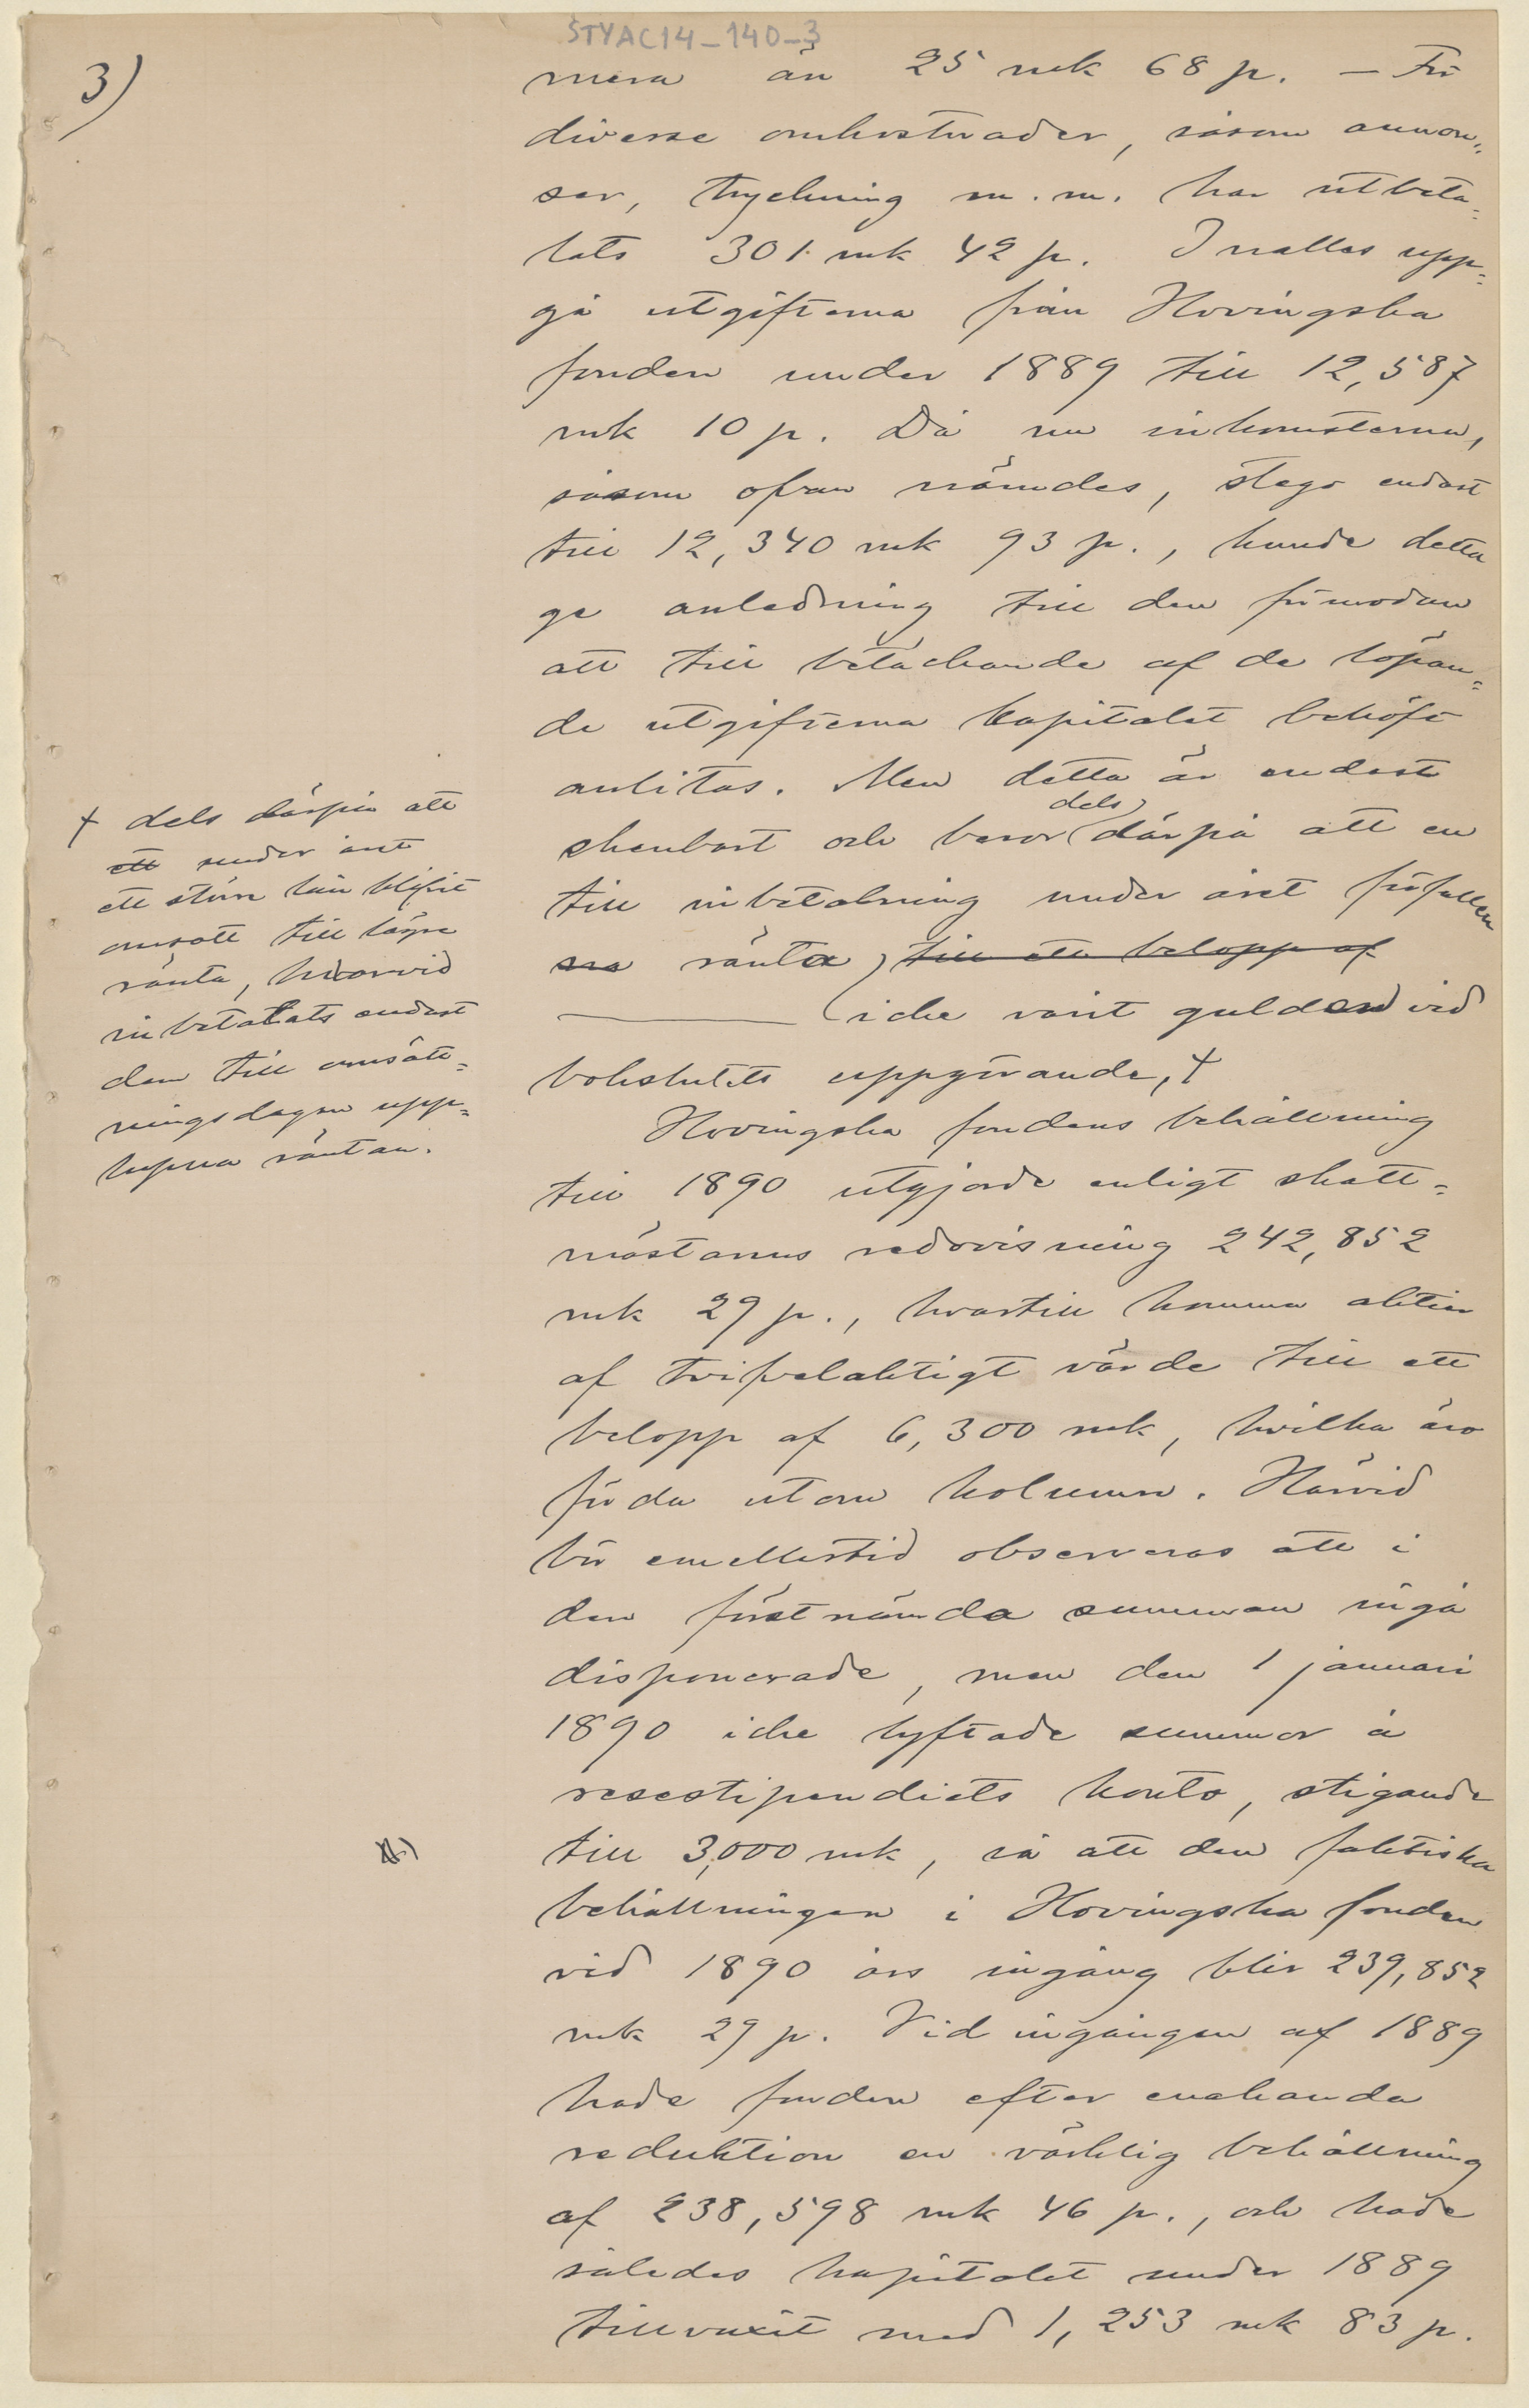 STYAC14-140-3
3)
mera än 25 mk 68 p. – För
diverse omkostnader, såsom annon-
ser, tryckning m. m. har utbeta-
lats 301 mk 42 p. Inalles upp-
gå utgifterna från Hovingska
fonden under 1889 till 12,587
mk 10 p. Då nu inkomsterna,
såsom ofvan nämndes, stego endast
till 12,340 mk 93 p., kunde detta
ge anledning till den förmodan
att till betäckande af de löpan-
de utgifterna kapitalet behöft
anlitas. Men detta är endast
skenbart och beror dels därpå att en
till inbetalning under året förfallen
ränta till ett belopp af
icke varit gulden vid
bokslutets uppgörande, †
Hovingska fondens behållning
till 1890 utgjorde enligt skatt-
mästarns redovisning 242,852
mk 29 p., hvartill komma aktier
af tvifvelaktigt värde till ett
belopp af 6,300 mk, hvilka äro
förda utom kolumn. Härvid
bör emellertid observeras att i
den förstnämda summan ingå
disponerade, men den 1 januari
1890 icke lyftade summor å
resestipendiets konto, stigande
till 3,000 mk, så att den faktiska
behållningen i Hovingska fonden
vid 1890 års ingång blir 239,852
mk 29 p. Vid ingången af 1889
hade fonden efter enahanda
reduktion en värklig behållning
af 238,598 mk 46 p., och hade
således kapitalet under 1889
tillvuxit med 1,253 mk 83 p.
† dels därpå att
ett under året
ett större lån blifvit
omsatt till lägre
ränta, hvarvid
inbetalats endast
den till omsätt-
ningsdagen upp-
lupna räntan.